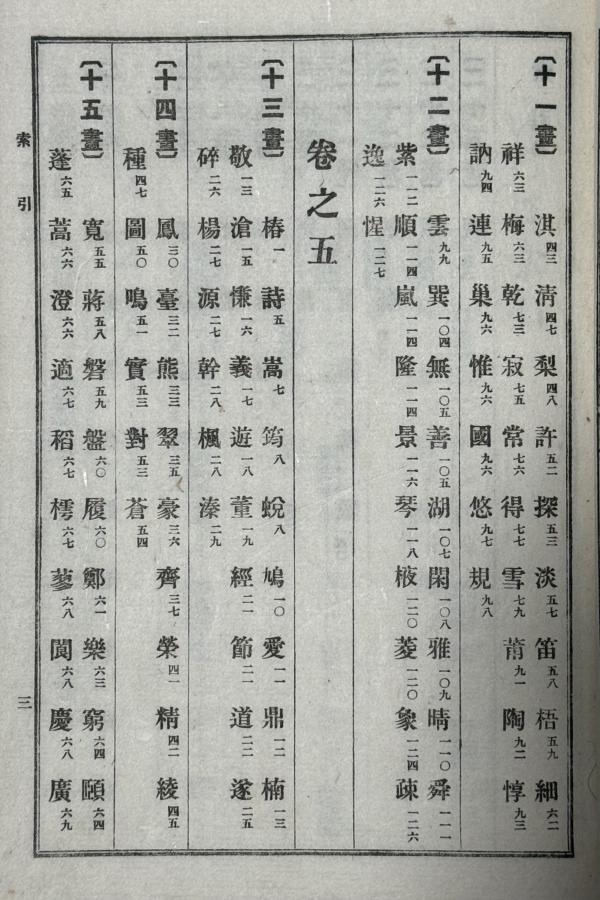 〔十一畫〕
淇四三 淸四七 梨四八 許五二 探五三 淡五七 笛五八 梧五九 細六二
祥六三 梅六三 乾七三 寂七五 常七六 得七七 雪七九 莆九一 陶九二 惇九三
訥九四 連九五 巢九六 惟九六 國九六 悠九七 規九八
〔十二畫〕
雲九九 巽一〇四 無一〇五 善一〇五 湖一〇七 閑一〇八 雅一〇九 晴一一〇 舜一一一
紫一一二 順一一四 嵐一一四 隆一一四 景一一六 琴一一八 棭一二〇 菱一二〇 象一二四 疎一二六
逸一二六 惺一二七
卷之五
〔十三畫〕
椿一 詩五 嵩七 筠八 蛻八 鳩一〇 愛一一 鼎一二 楠一三
敬一三 滄一五 慊一六 義一七 遊一八 董一九 經二一 節二一 道二二 遂二五
碎二六 楊二七 源二七 幹二八 楓二八 溱二九
〔十四畫〕
鳳三〇 臺三二 熊三三 翠三五 豪三六 齊三七 榮四一 精四二 綾四五
種四七 圖五〇 鳴五一 實五三 對五三 蒼五四
〔十五畫〕
寬五五 蔣五八 磐五九 盤六〇 履六〇 鄭六一 樂六三 窮六四 頤六四
蓬六五 蒿六六 澄六六 適六七 稻六七 樗六七 蓼六八 閩六八 慶六八 廣六九
索引
三